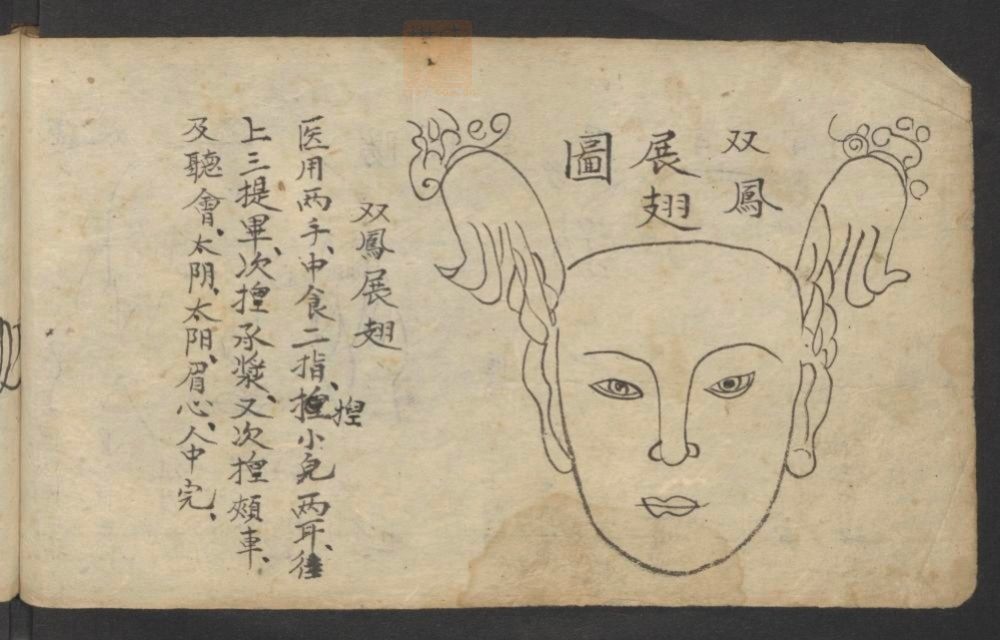 双鳳
展翅
圖
双鳳展翅
医用两手、中食二指、揑小児两耳、往
揑
上三提畢、次揑承漿、又次揑頰車、
及聽會、太阴、太阳、眉心、人中完、